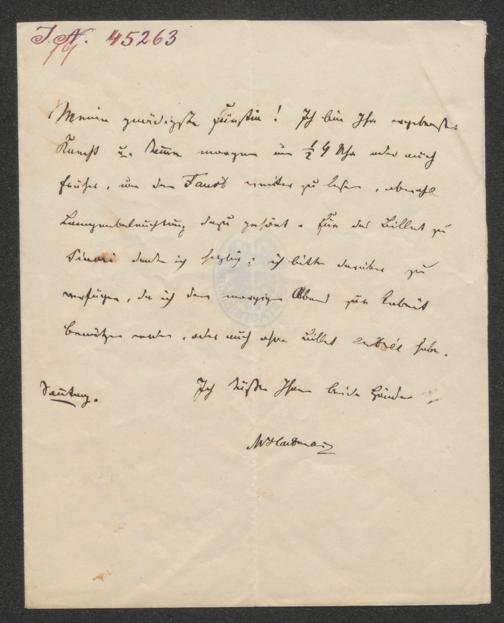 I. N. 45263
Meine gnädigste Fürstin! Ich bin Ihr ergebenster
Knecht u. komme morgen um ½ 4 Uhr oder auch
früher, um den Faust weiter zu lesen, obwohl
Lampenbeleuchtung dazu gehört. Für das Billet zu
danke ich herzlich; ich bitte darüber zu
verfügen, da ich den morgigen Abend zur Arbeit
benützen werde, oder auch ohne Billet entrée habe.
Ich küsse Ihnen beide Hände
Sonntag.